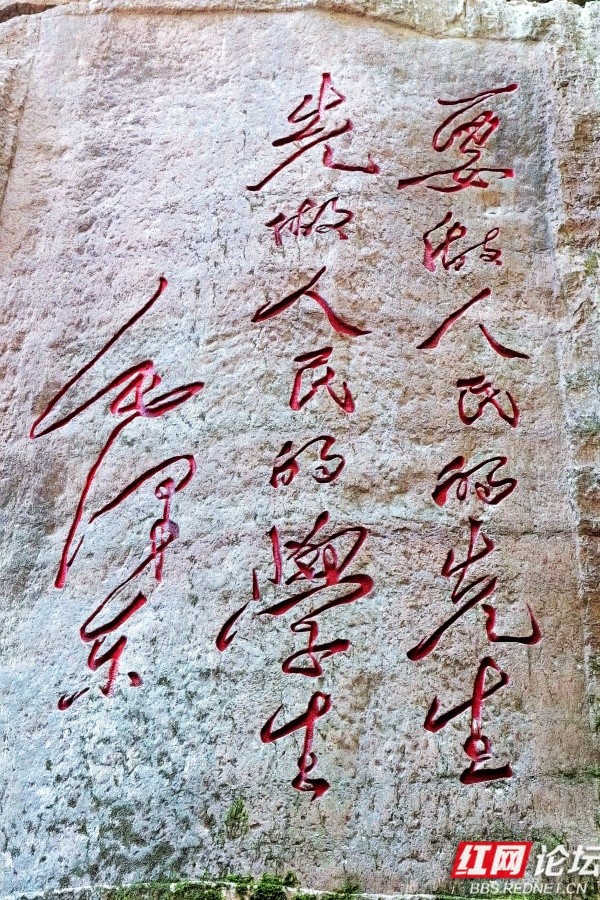 要做人民的先生
先做人民的學生
毛泽东
红网论坛
BBS.REDNET.CN